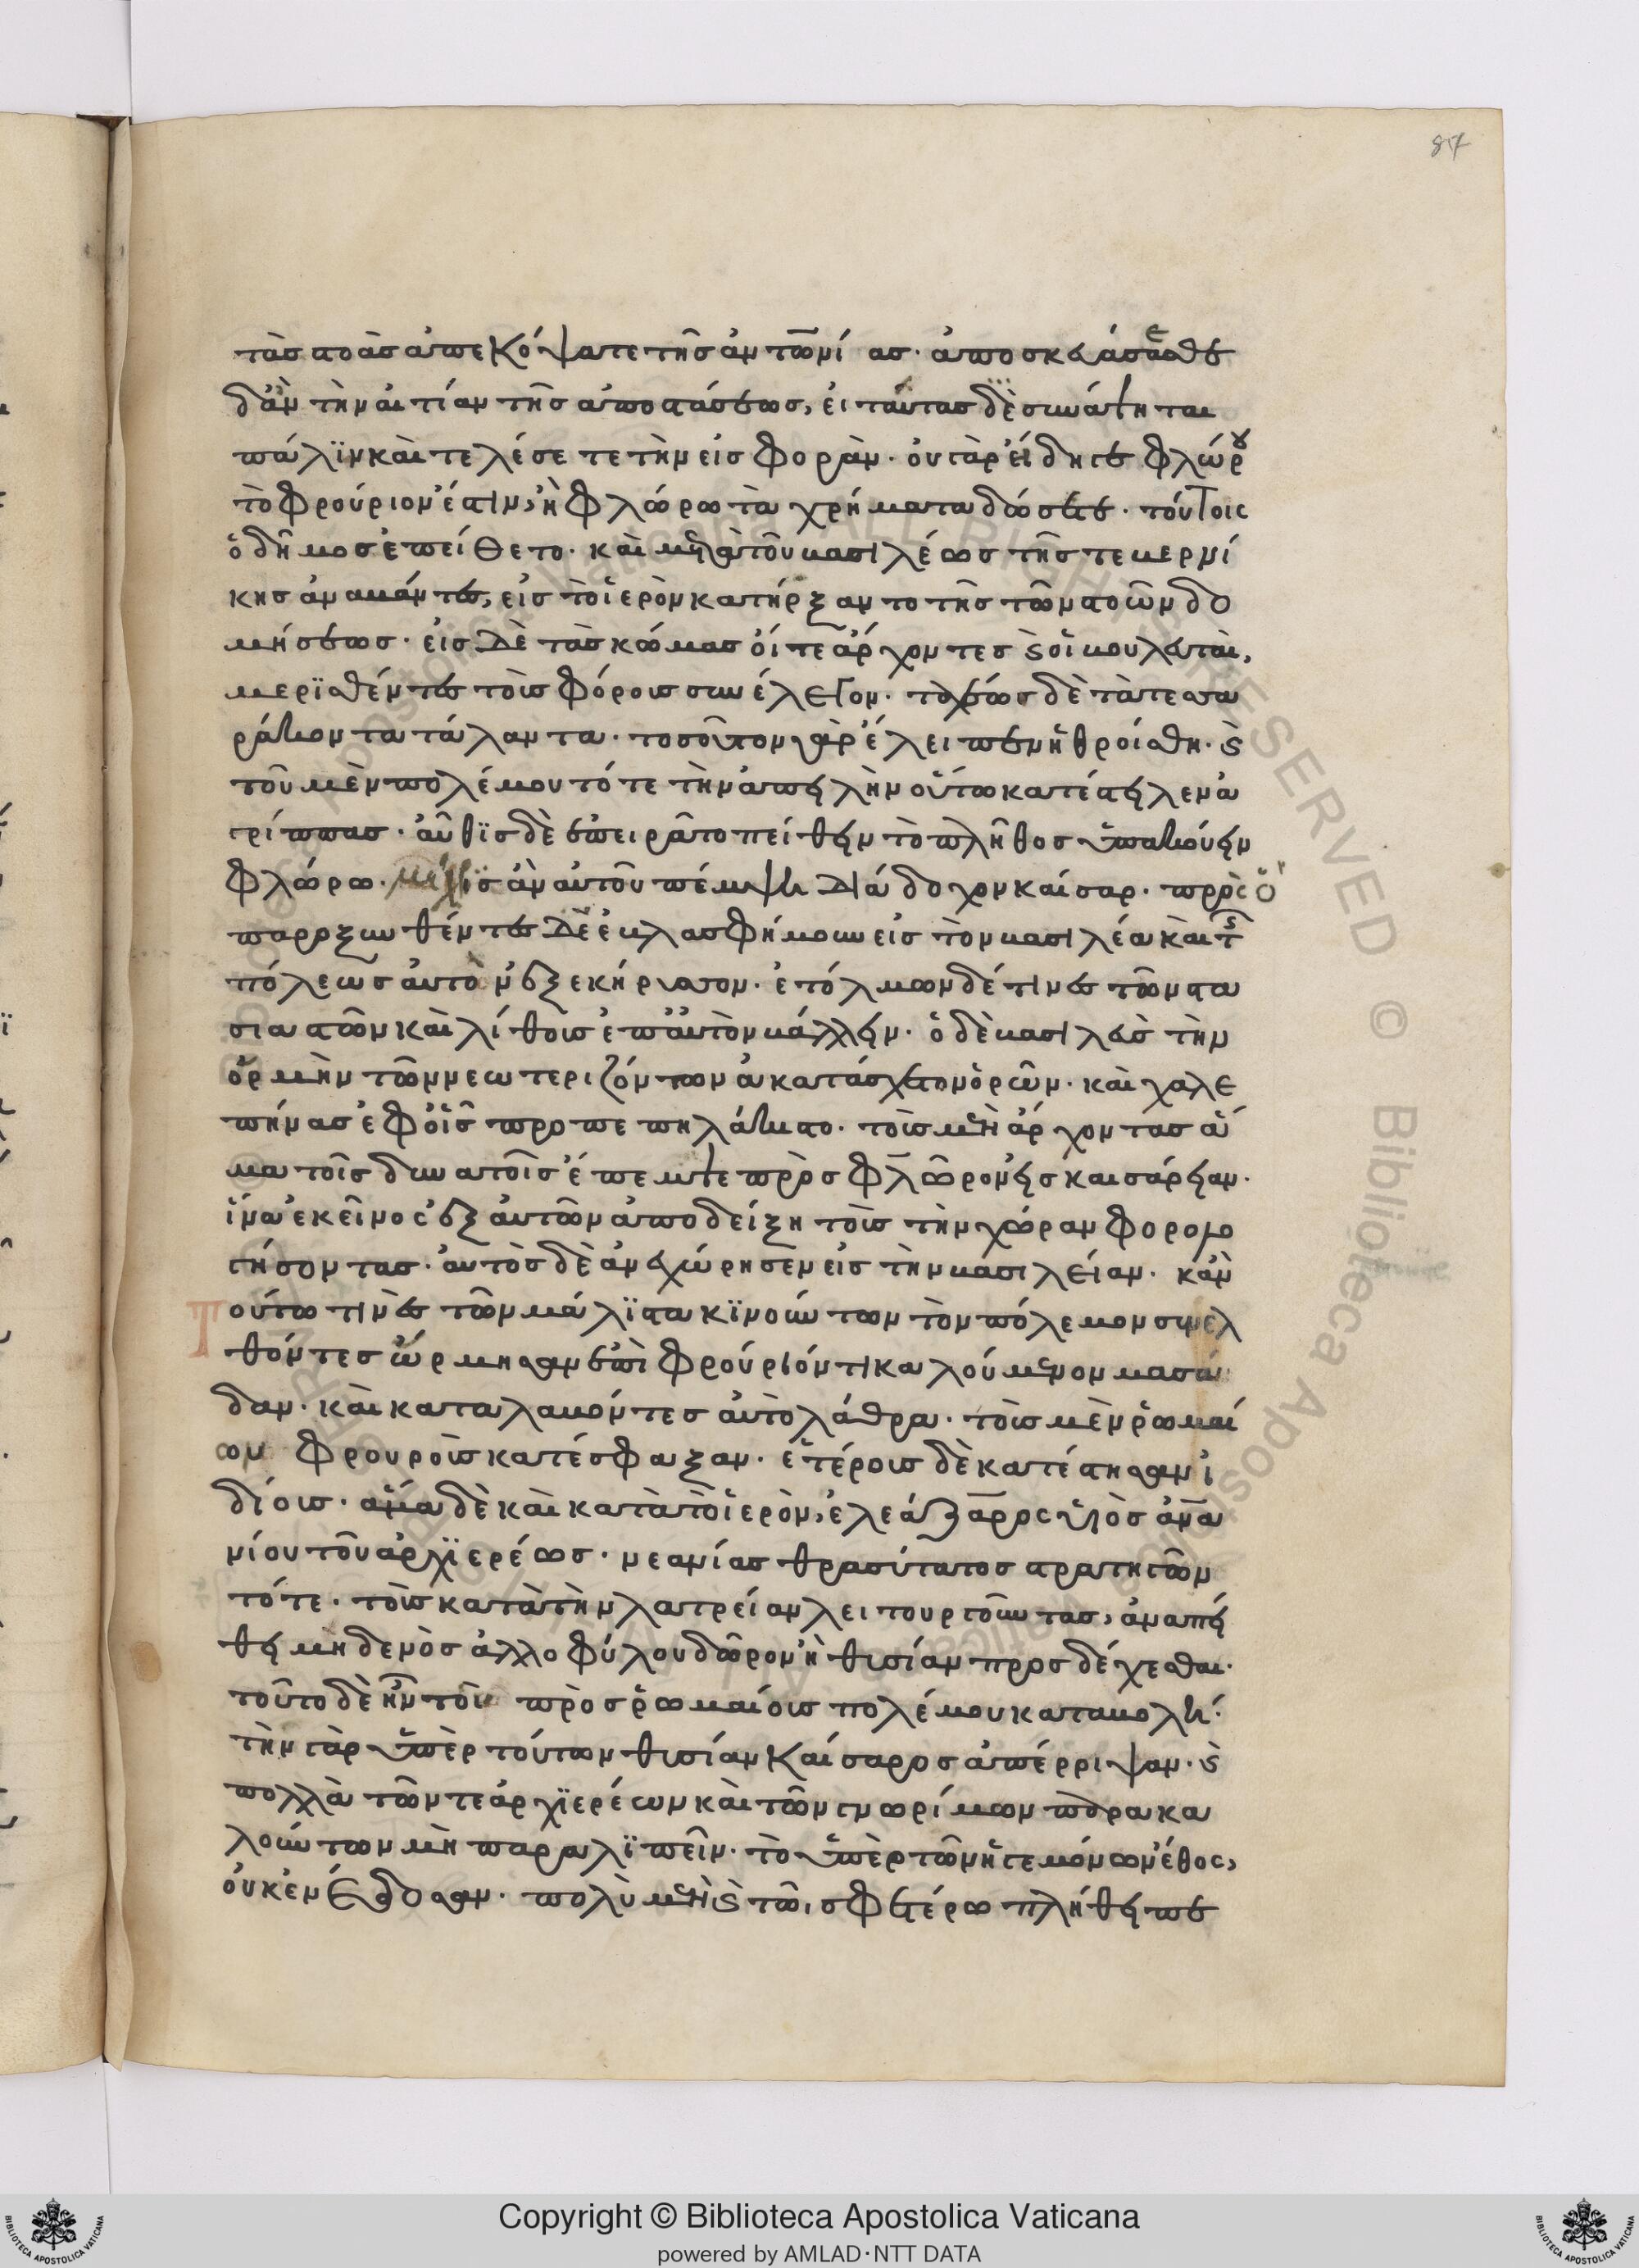 87
τὰσ στοὰσ ἀπεκόψατε τῆσ ἀντωνίασ· ἀποσκευάσαισθε
δ' ἂν τὴν αἰτίαν τῆσ ἀποστάσεωσ, εἰ ταύτασ δὲ συνάψηται
πάλϊν καὶ τελέσετε τὴν εἰσφοράν· οὐ γὰρ εἰ δήγε φλώρου
τὸ φρούριον ἐστιν, ἢ φλώρω τὰ χρήματα δώσετε. τούτοις
ὁ δῆμοσ ἐπείθετο· καὶ μετὰ τοῦ βασιλέωσ τῆσ τε βερνί
κησ ἀναβάντες, εἰσ τὸ ἱερὸν κατήρξαντο τῆσ τῶν στοῶν δο
μήσεωσ· εἰσ δὲ τὰσ κώμασ οἵ τε ἄρχοντεσ καὶ οἱ βουλευταὶ,
μερϊσθέντες τοὺσ φόρουσ συνέλεγον· ταχέωσ δὲ τὰ τεσσα
ράκοντα τάλαντα· τοσοῦτον γὰρ ἔλειπεν ἠθροίσθη· καὶ
τοῦ μὲν πολέμου τότε τὴν ἀπειλὴν οὕτω κατέστειλεν ἀ
γρίππασ· αὖθϊσ δὲ ἐπειρᾶτο πείθειν τὸ πλῆθοσ ὑπακούειν
φλώρω· μέχρϊσ ἀν αὐτοῦ πέμψει διάδοχον καίσαρ· πρὸς ὃ
παροξυνθέντες δὲ ἐβλασφήμουν εἰσ τὸν βασιλέα καὶ τῆς
πόλεωσ αὐτὸν ἐξεκήρυσσον· ἐτόλμων δέ τινες τῶν στα
σιαστῶν καὶ λίθουσ ἐπ' αὐτὸν βάλλειν· ὁ δὲ βασιλεὺσ τὴν
ὁρμὴν τῶν νεωτεριζόντων ἀκατάσχετον ὁρῶν· καὶ χαλε
πήνασ ἐφ' οἷσ προπεπηλάκιστο· τοὺσ μὲν ἄρχοντασ ἅ
μα τοῖσ δυνατοῖσ ἔπεμψε πρὸσ φλῶρον εἰσ καισάρειαν·
ἵνα ἐκεῖνος ἐξ αὐτῶν ἀποδείξη τοὺσ τὴν χώραν φορολο
γήσοντασ· αὐτὸσ δὲ ἀνεχώρησεν εἰσ τὴν βασιλείαν· κἀν
τούτω τινὲσ τῶν μάλϊστα κϊνούντων τὸν πόλεμον συνελ
θόντεσ ὥρμησαν ἐπὶ φρούριόν τι καλούμενον μασά
δαν· καὶ καταλαβόντεσ αὐτὸ λάθρα· τοὺσ μὲν ῥωμαί
ων φρουροὺσ κατέσφαξαν· ἑτέρουσ δὲ κατέστησαν ἰ
δίουσ· ἅμα δὲ καὶ κατὰ τὸ ἱερὸν, ἐλεάζαρος υἱὸσ ἀνα
νίου τοῦ ἀρχϊερέωσ· νεανίασ θρασύτατοσ στρατηγῶν
τότε· τοὺσ κατὰ τὴν λατρείαν λειτουργοῦντασ, ἀναπεί
θει μηδενὸσ ἀλλοφύλου δῶρον ἢ θυσίαν προσδέχεσθαι·
τοῦτο δὲ ἦν τοῦ πρὸσ ῥωμαίουσ πολέμου καταβολή·
τὴν γὰρ ὑπὲρ τούτων θυσίαν καίσαροσ ἀπέρριψαν· καὶ
πολλὰ τῶν τε ἀρχϊερέων καὶ τῶν γνωρίμων παρακα
λούντων μὴ παραλϊπεῖν· τὸ ὑπὲρ τῶν ἡγεμόνων ἔθος,
οὐκ ἐνέδοσαν· πολὺ μὲν καὶ τῶ σφετέρω πλήθει πε
Copyright © Biblioteca Apostolica Vaticana
powered by AMLAD·NTT DATA